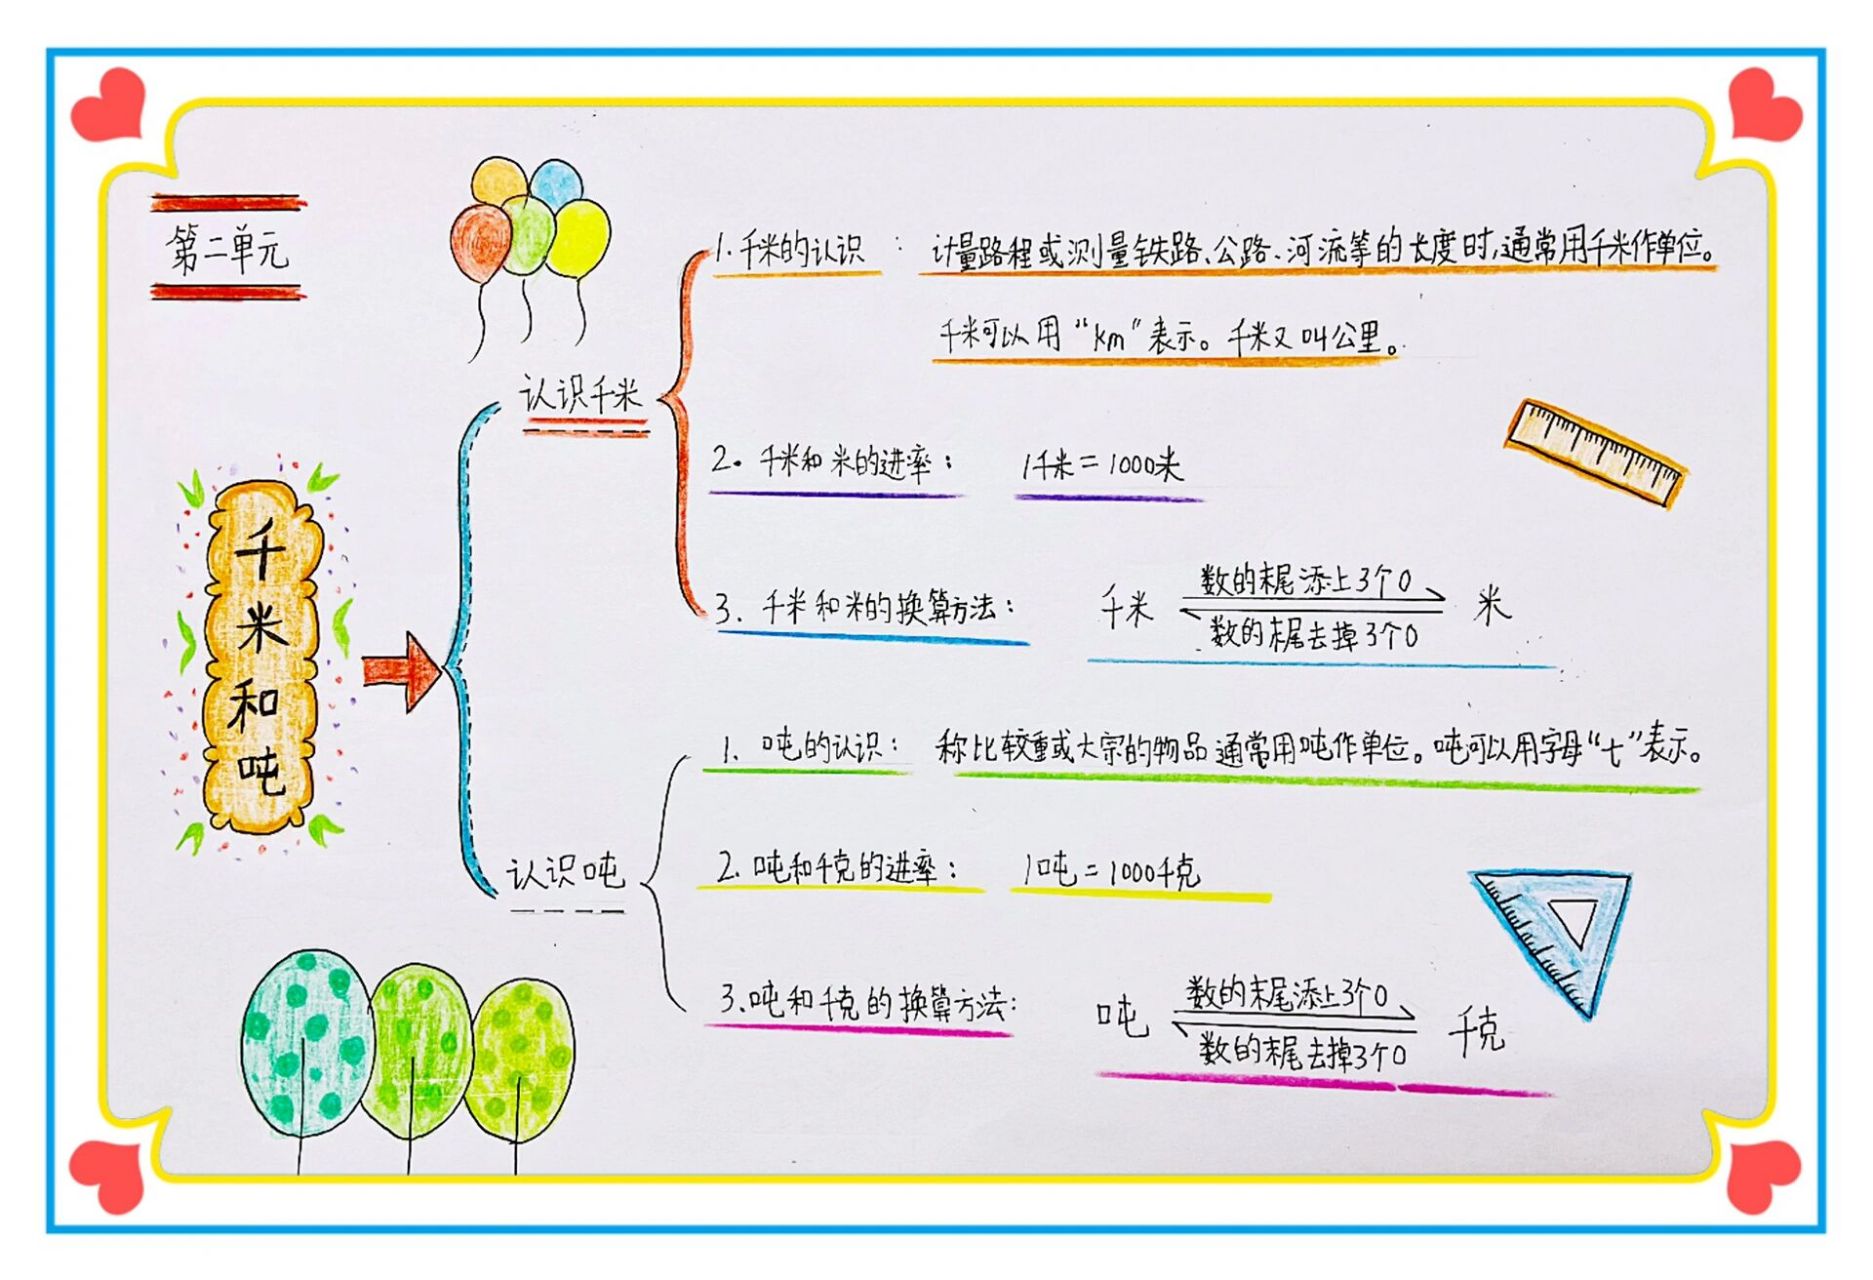 第二单元
千米和吨
认识千米
1.千米的认识：计量路程或测量铁路、公路、河流等的长度时,通常用千米作单位。
千米可以用“km”表示。千米又叫公里。
2. 千米和米的进率： 1千米=1000米
3. 千米和米的换算方法： 千米 数的末尾添上3个0 米
数的末尾去掉3个0
认识吨
1. 吨的认识： 称比较重或大宗的物品通常用吨作单位。吨可以用字母“t”表示。
2. 吨和千克的进率： 1吨=1000千克
3.吨和千克的换算方法： 吨 数的末尾添上3个0 千克
数的末尾去掉3个0